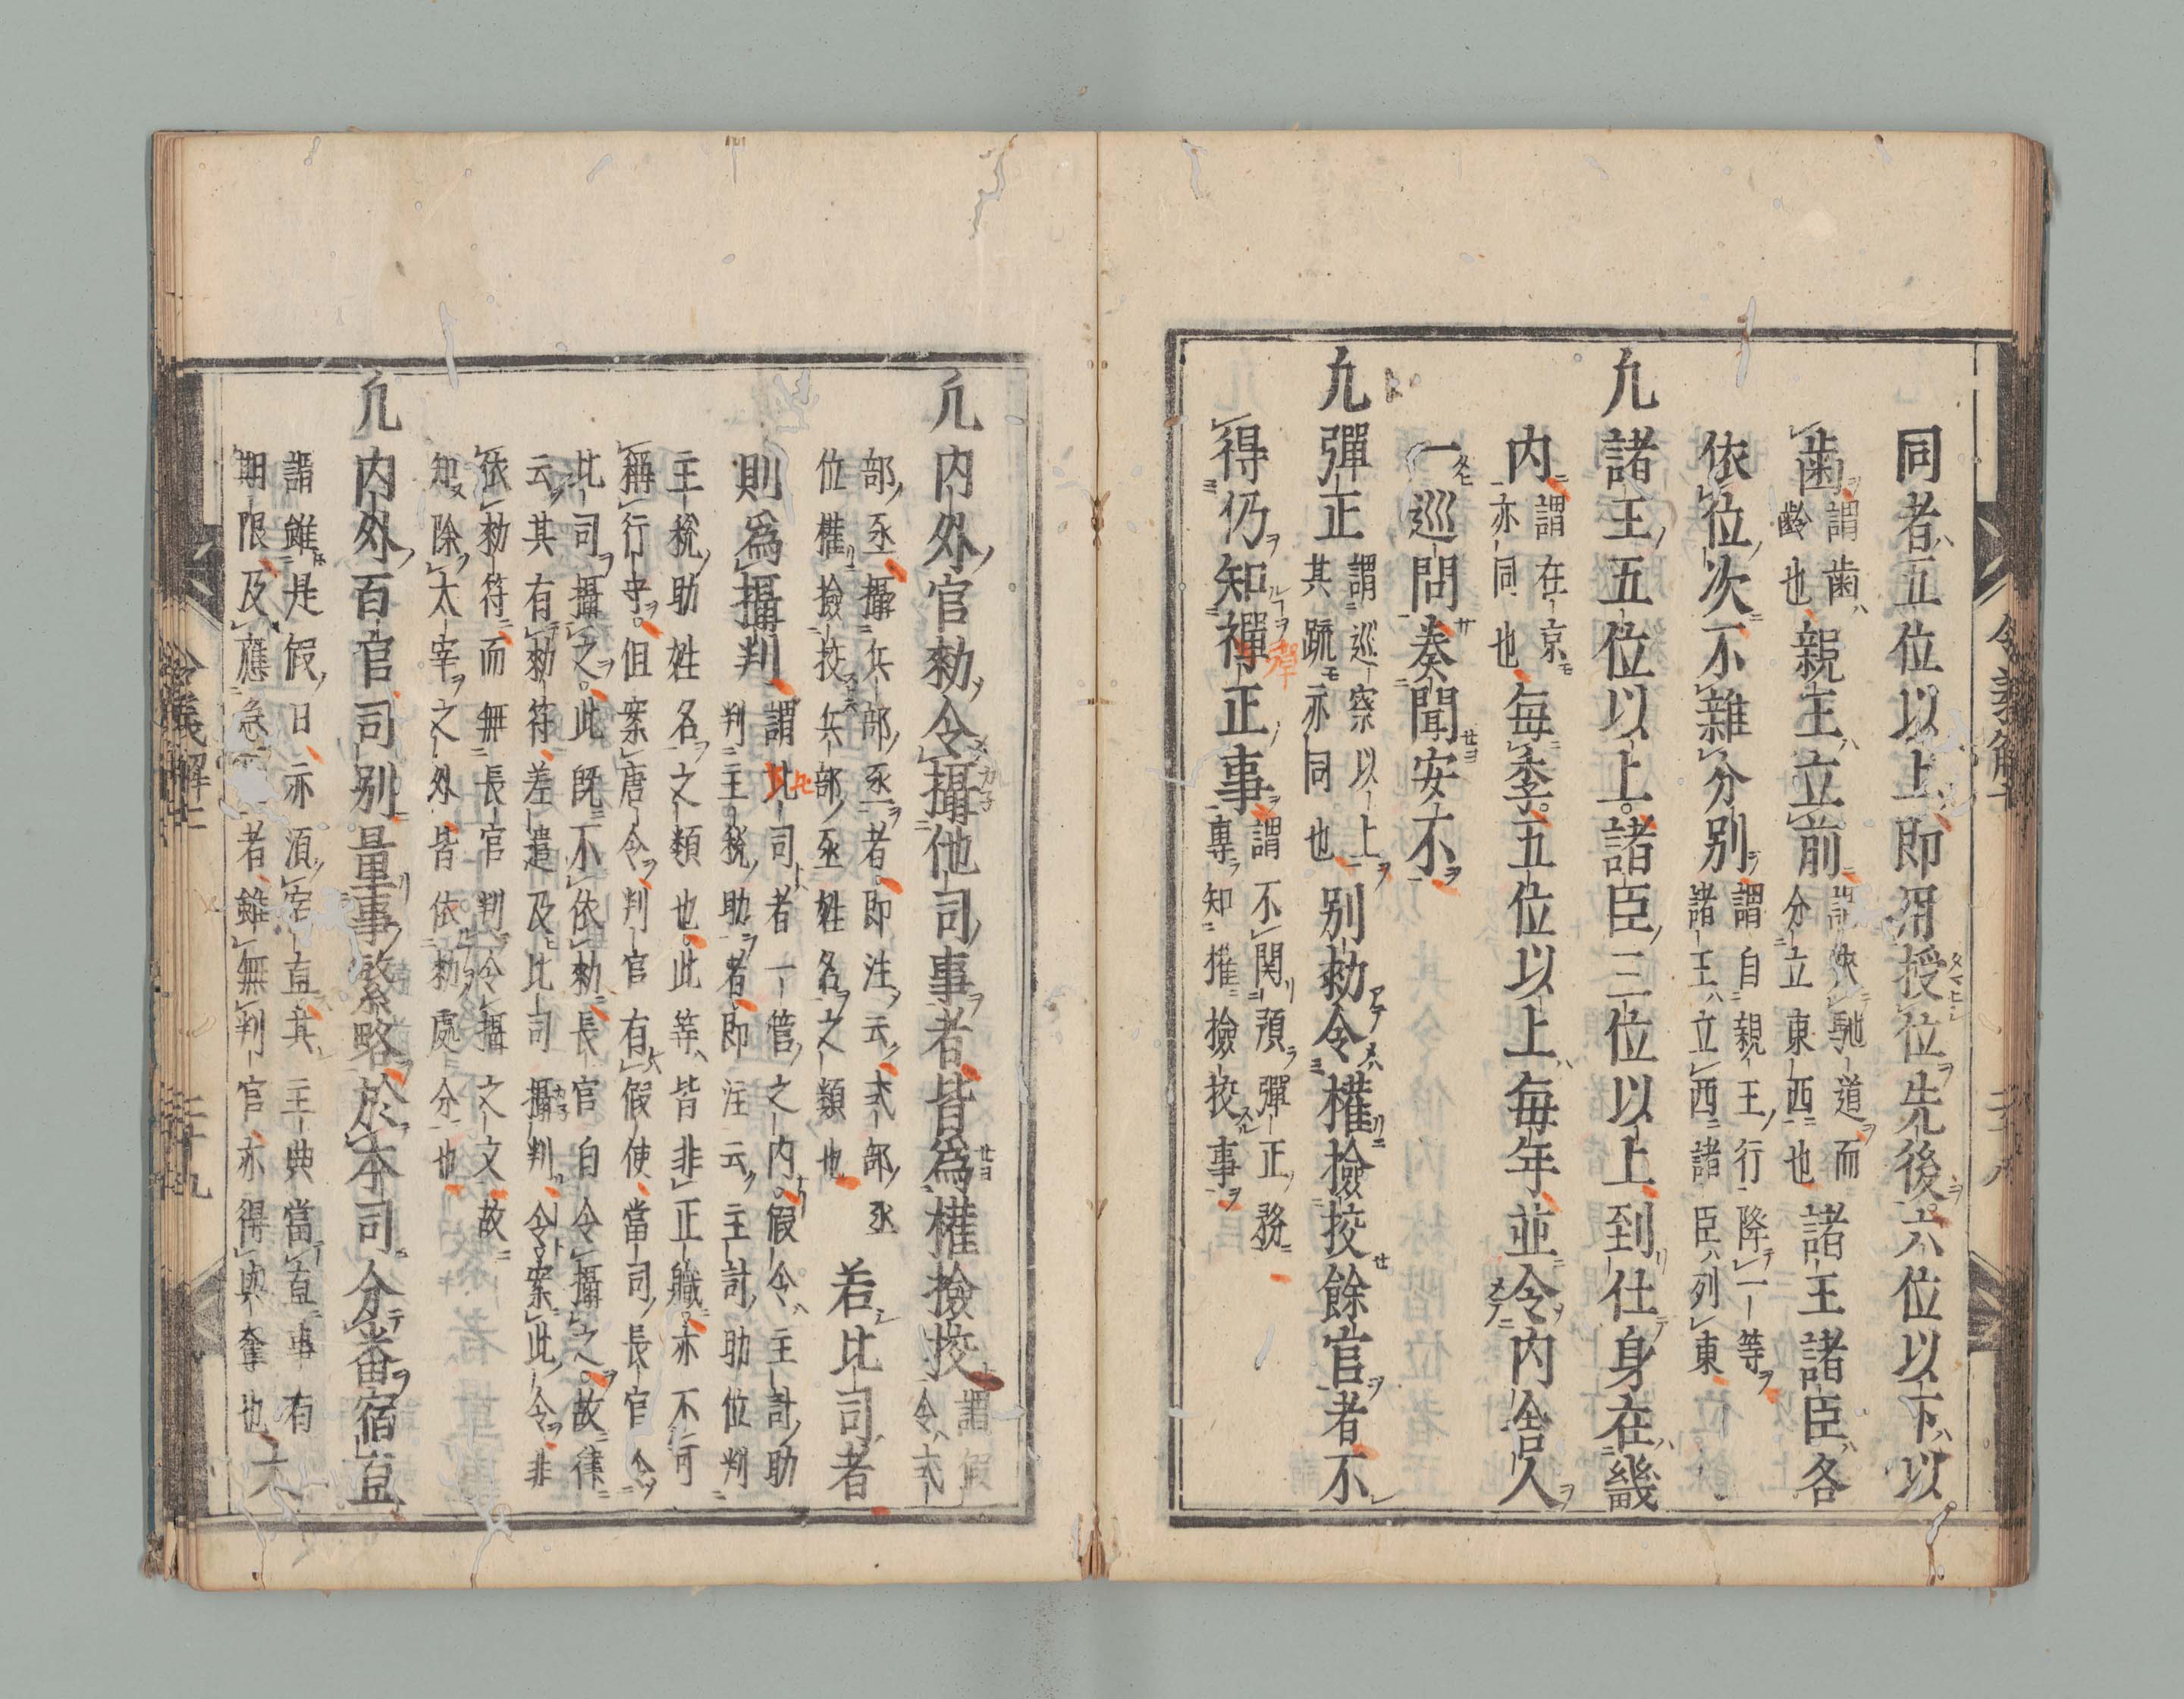 同者五位以上即用授位先後六位以下以
歯謂歯齡也親王立前謂使馳道而分立東西也諸王諸臣各
依位次不雜分別謂自親王行降一等諸王立西諸臣列東
凢諸王五位以上諸臣三位以上到仕身在畿
内謂在京亦同也毎季五位以上毎年並令内舎人
一巡問奏聞安不
凢彈正謂巡察以上其疏亦同也別勅令權撿挍餘官者不
得仍知禪正事謂不関預彈正務專知權撿挍事
凢内外官勅令攝他司事者皆為權撿挍謂假令式
部丞攝兵部丞者即注云式部丞
位權撿挍兵部丞姓名之類也若比司者
則為攝判謂比司者一管之内假令主計助
判主税助者即注云主計助位判
主税助姓名之類也此等皆非正職亦不可
稱行守但案唐令判官有假使當司長官令
比司攝之此既不依勅長官自令攝之故律
云其有勅符差遣及比司攝判令案此令非
依勅符而無長官判令攝文之文故
知除太宰之外皆依勅處分也
凢内外百官司別量事繁略於本司分番宿直
謂雖是假日亦須宿直其主典當直事有
期限及應急者雖無判官亦得與奪也大
令義解二
二十九